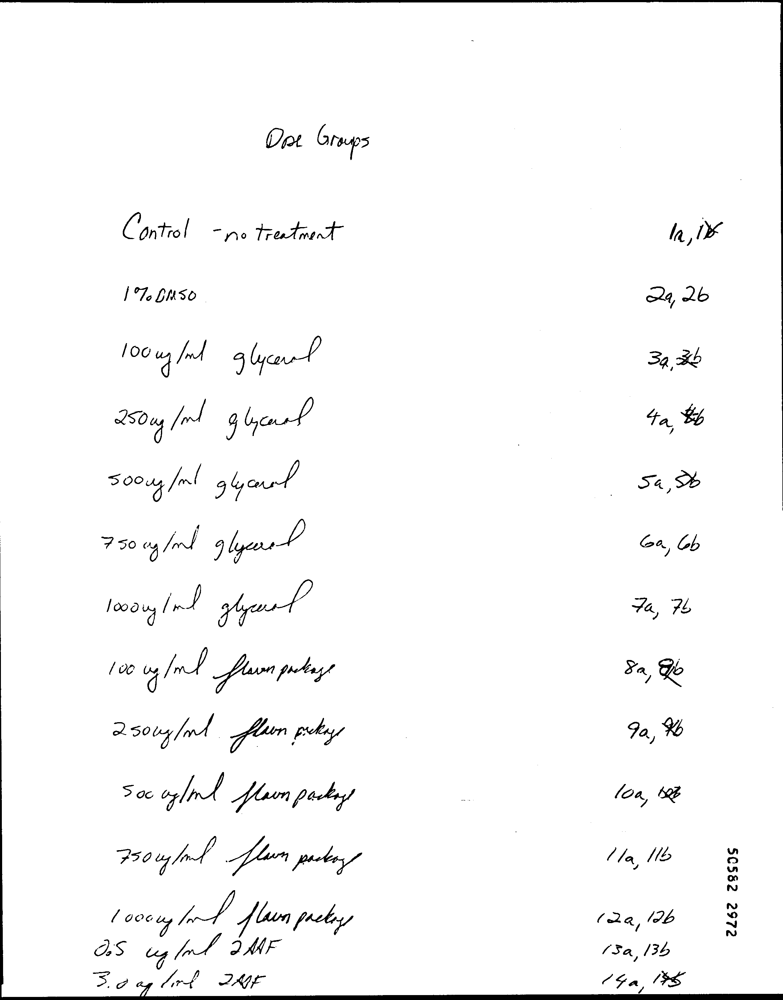 Dose Groups
Control - no treatment 1a, 1b
1% DMSO 2a, 2b
100 ug/ml glycerol 3a, 3b
250 ug/ml glycerol 4a, 4b
500 ug/ml glycerol 5a, 5b
750 ug/ml glycerol 6a, 6b
1000 ug/ml glycerol 7a, 7b
100 ug/ml flavor package 8a, 8b
250 ug/ml flavor package 9a, 9b
500 ug/ml flavor package 10a, 10b
750 ug/ml flavor package 11a, 11b
1000 ug/ml flavor package 12a, 12b
0.5 ug/ml 2AAF 13a, 13b
3.0 ug/ml 2AAF 14a, 14b
50582 2972